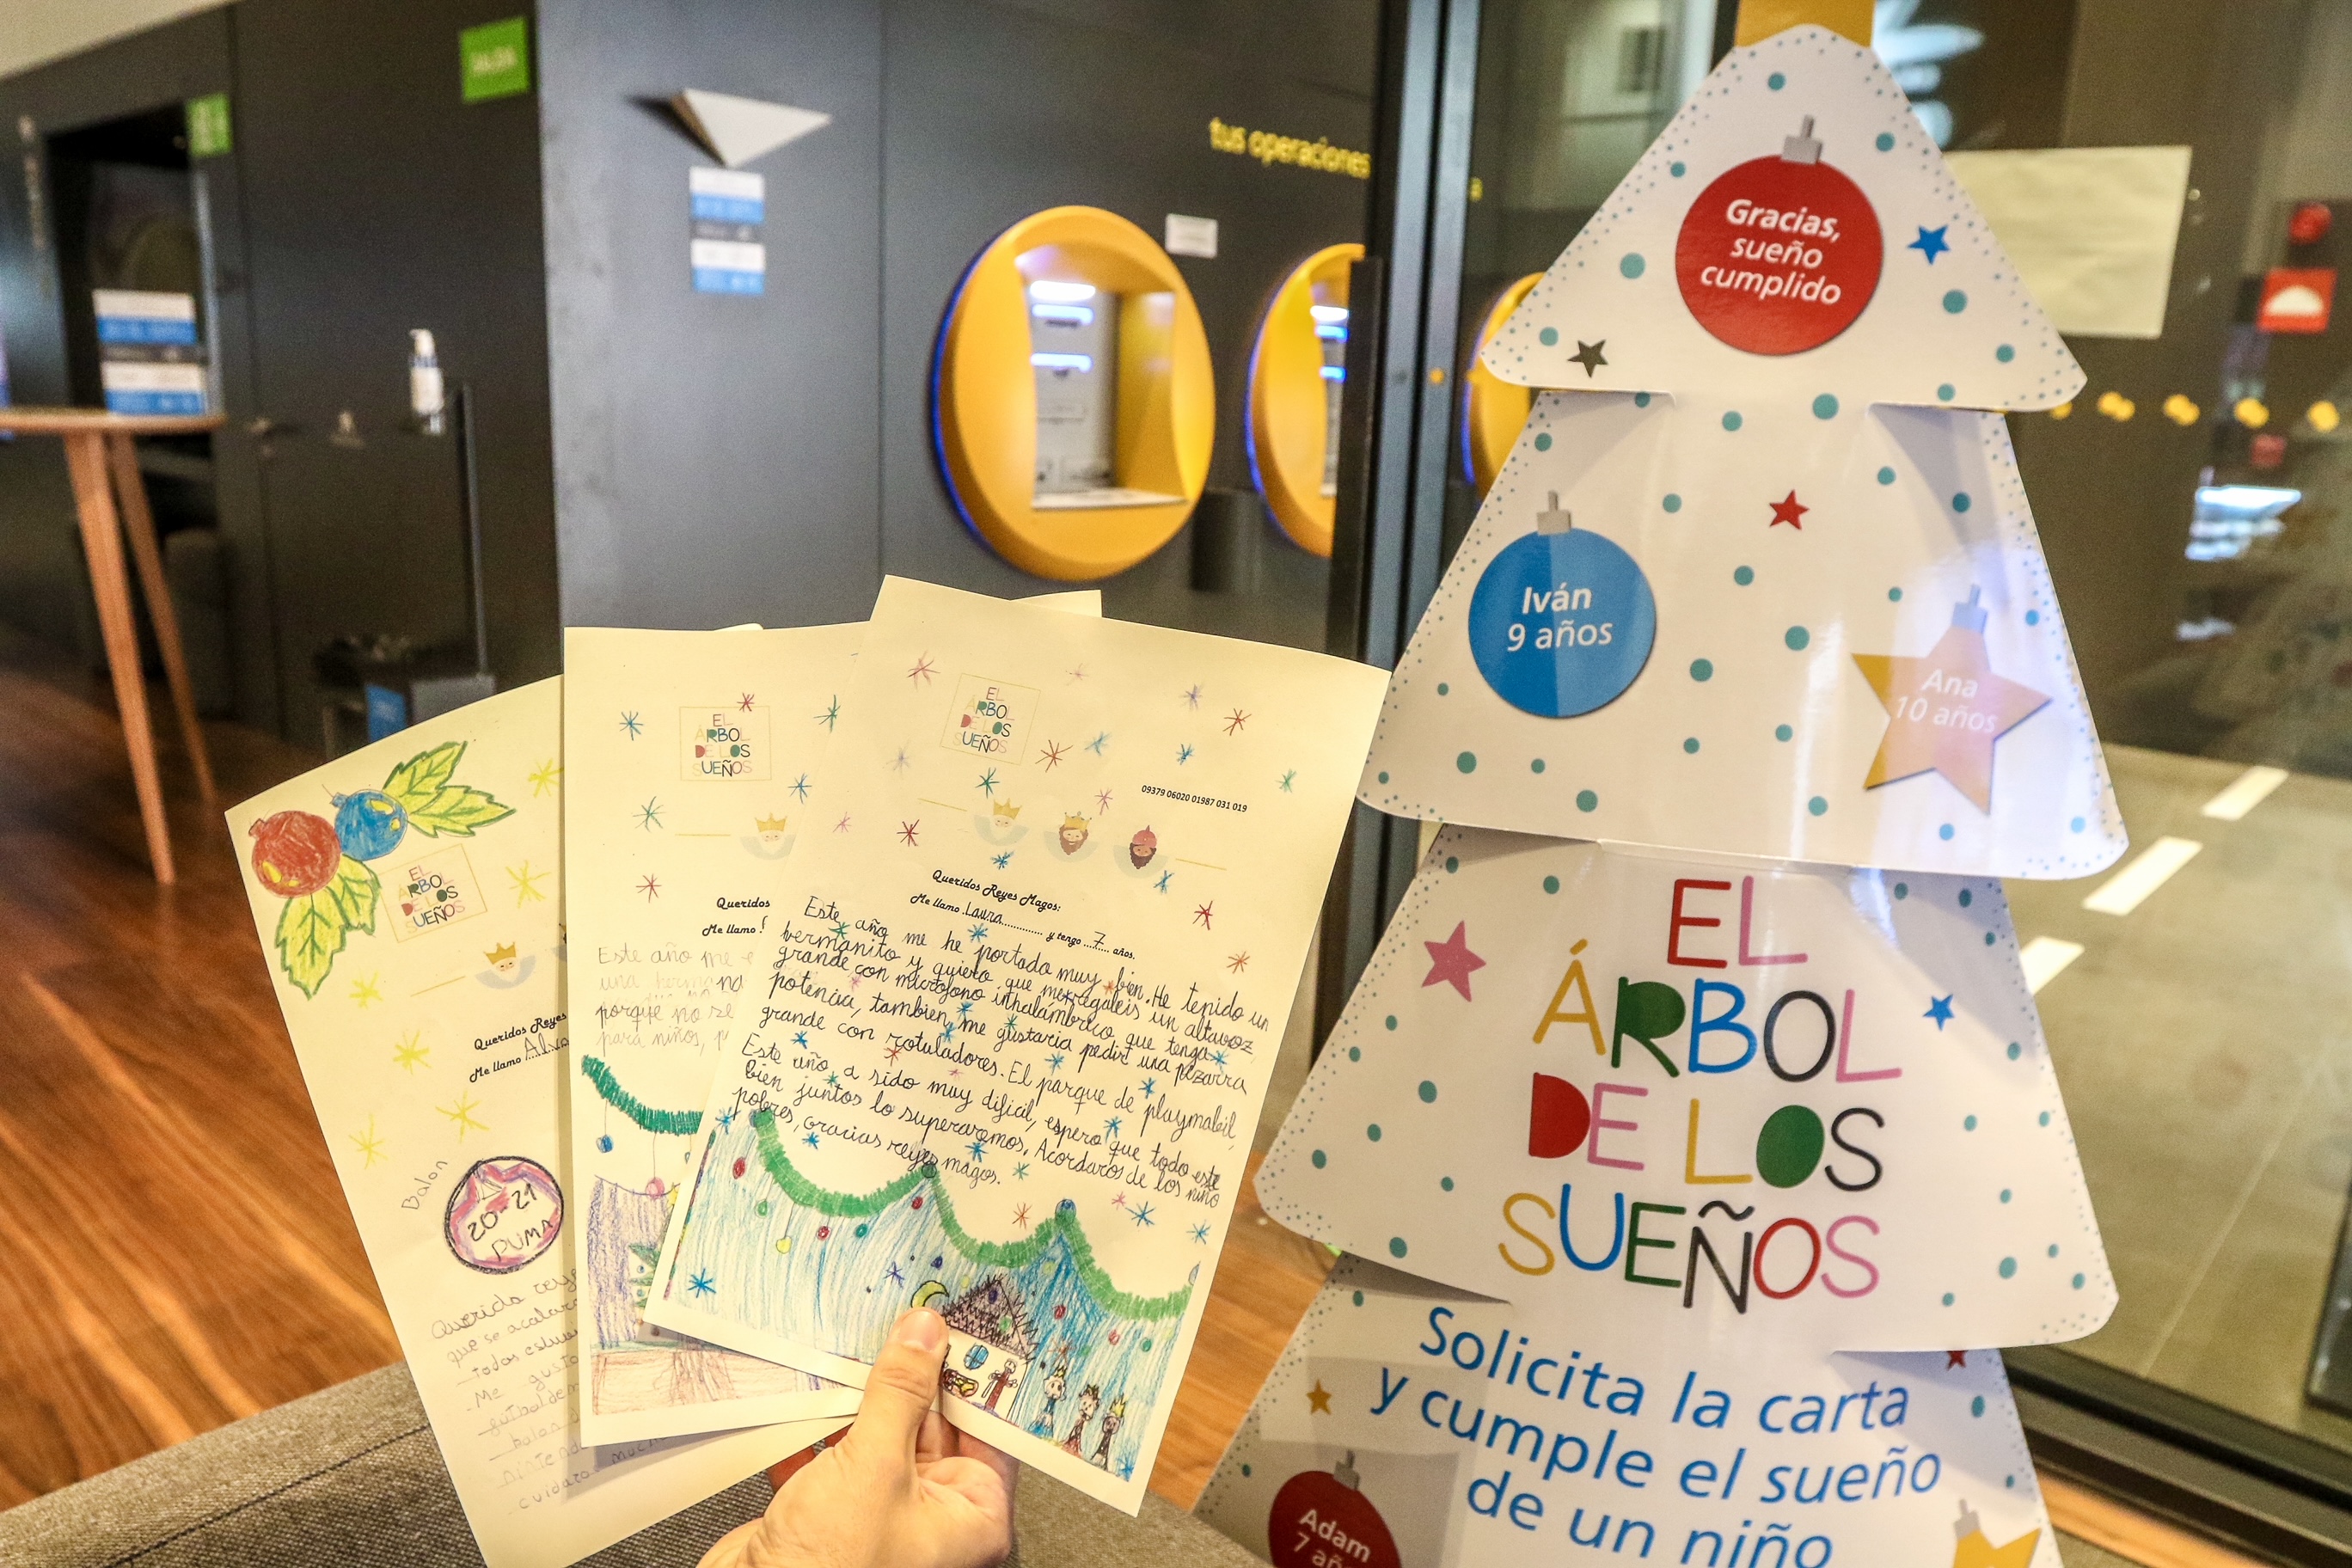 tus operaciones
Gracias,
sueño
cumplido
Iván
9 años
Ana
10 años
EL
ÁRBOL
DE LOS
SUEÑOS
Solicita la carta
y cumple el sueño
de un niño
Adam
7 añ
EL
ÁRBOL
DE LOS
SUEÑOS
09379 06020 01987 031 019
Queridos Reyes Magos:
Me llamo Laura y tengo 7 años.
Este año me he portado muy bien. He tenido un
hermanito y quiero que me regaleis un altavoz
grande con micrófono inhalámbrico que tenga
potencia, tambien me gustaria pedir una pizarra
grande con rotuladores. El parque de playmobil,
Este año a sido muy dificil, espero que todo este
bien juntos lo superaremos. Acordaros de los niño
pobres, gracias reyes magos.
EL
ÁRBOL
DE LOS
SUEÑOS
Queridos
Me llamo
Este año me
una herma
porque no se
para niños,
EL
ÁRBOL
DE LOS
SUEÑOS
Queridos Reyes
Me llamo Alva
Balon
20-21
PUMA
Querido reye
que se acabara
todos
Me gusta